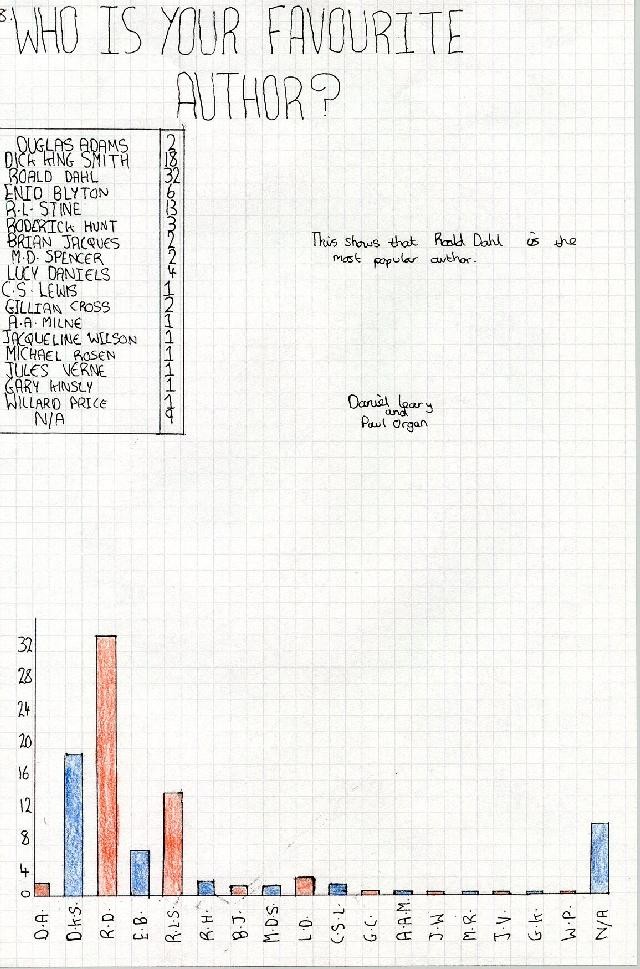 8.
WHO IS YOUR FAVOURITE
AUTHOR?
DOUGLAS ADAMS 2
DICK KING SMITH 18
ROALD DAHL 32
ENID BLYTON 6
R.L. STINE 13
RODERICK HUNT 3
BRIAN JACQUES 2
M.D. SPENCER 2
LUCY DANIELS 4
C.S. LEWIS 1
GILLIAN CROSS 2
A.A. MILNE 1
JACQUELINE WILSON 1
MICHAEL ROSEN 1
JULES VERNE 1
GARY KINSLY 1
WILLARD PRICE 1
N/A 9
This shows that Roald Dahl is the
most popular author.
Daniel Leary
and
Paul Organ
32
28
24
20
16
12
8
4
0
D.A. D.K.S. R.D. E.B. R.L.S. R.H. B.J. M.D.S. L.D. C.S.L. G.C. A.A.M. J.W. M.R. J.V. G.K. W.P. N/A